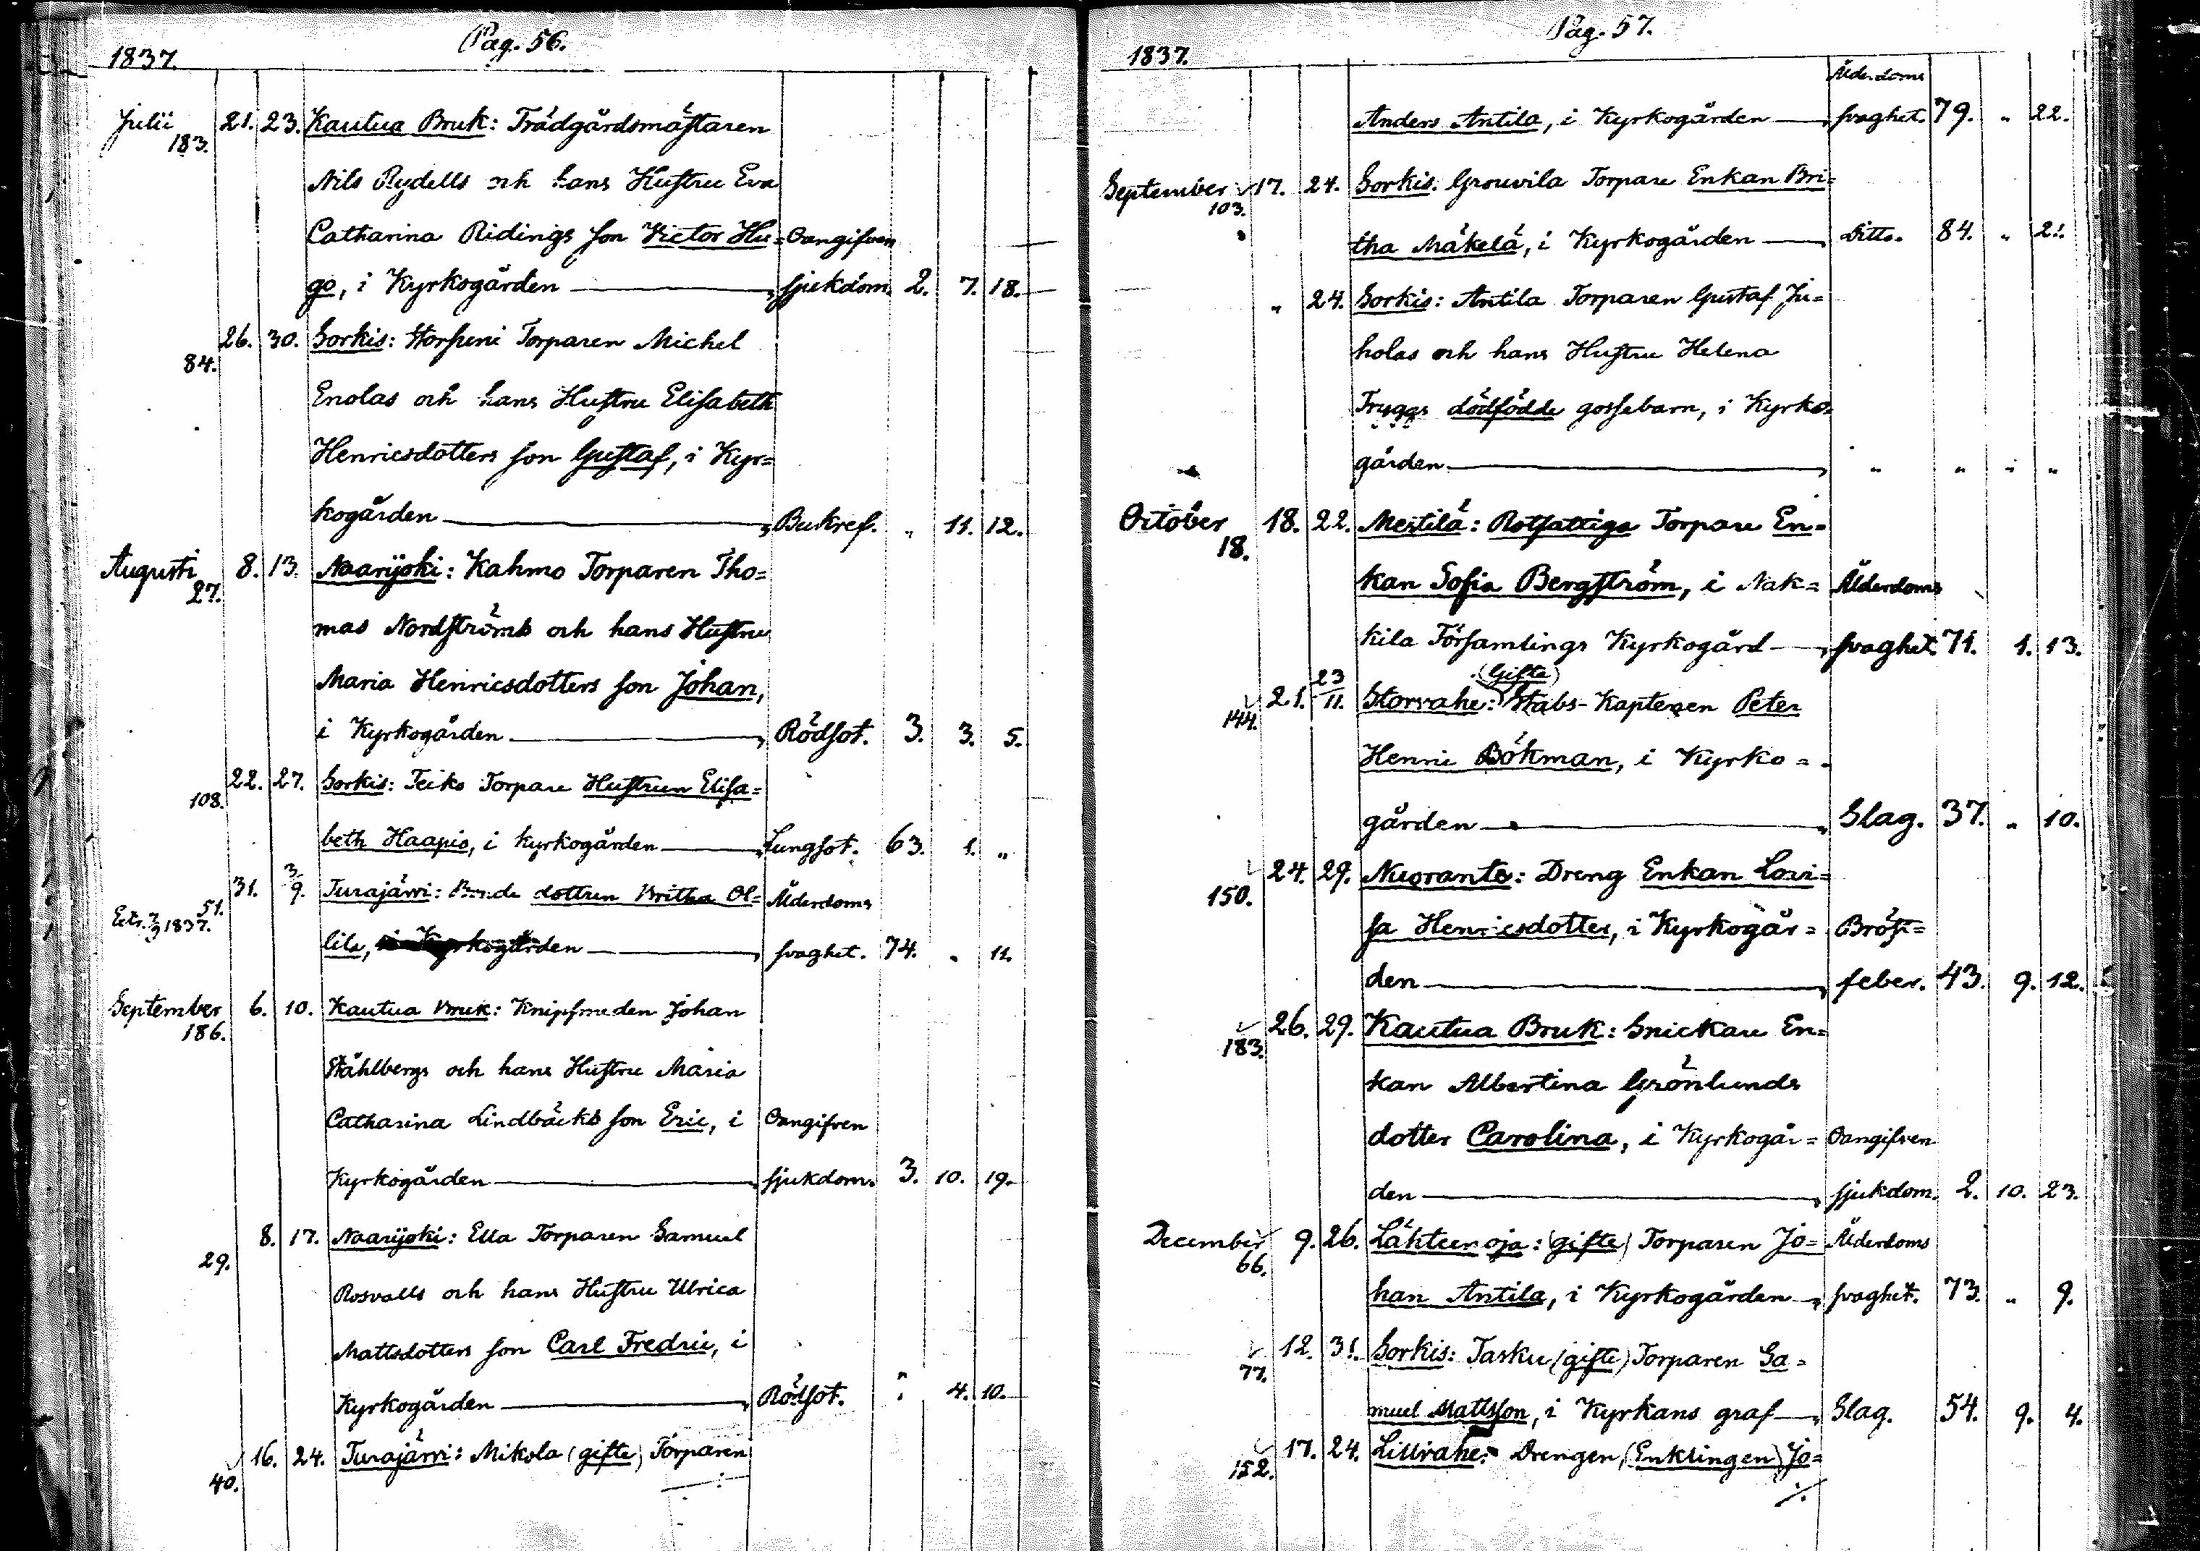 Pag. 56.
1837.
Julii 21. 23. Kautua Bruk: Trädgårdsmästaren
183.
Nils Rydells och hans Hustru Eva
Catharina Ridings son Victor Hu= Oangifven
go, i Kyrkogården sjukdom. 2. 7. 18.
26. 30. Sorkis: Torparen Michel
84.
Enolas och hans Hustru Elisabeth
Henricsdotters son Gustaf, i Kyr=
kogården Bukref. „ 11. 12.
Augusti 8. 13. Naarijoki: Kahmo Torparen Tho=
27.
mas Nordströms och hans Hustru
Maria Henricsdotters son Johan,
i Kyrkogården Rödsot. 3. 3. 5.
22. 27. Sorkis: Teiko Torpare Hustrun Elisa=
108.
beth Haapio, i kyrkogården Lungsot. 63. 1. „
31. 3/9. Turajärvi: Bonde dottren Britha Ol= Ålderdoms
51.
1837.
lila, i Kyrkogården svaghet. 74. „ 11.
September 6. 10. Kautua Bruk: Knipsmeden Johan
186.
Ståhlbergs och hans Hustru Maria
Catharina Lindbäcks son Eric, i Oangifven
Kyrkogården sjukdom. 3. 10. 19.
8. 17. Naarijoki: Ella Torparen Samuel
29.
Rosvalls och hans Hustru Ulrica
Mattsdotters son Carl Fredric, i
Kyrkogården Rödsot. „ 4. 10.
16. 24. Turajärvi: Mikola (gifte) Torparen
40.
Pag. 57.
1837.
Ålderdoms
Anders Antila, i Kyrkogården svaghet. 79. „ 22.
September 17. 24. Sorkis: Grouvila Torpare Enkan Bri=
103.
tha Mäkelä, i Kyrkogården Ditto. 84. „ 21.
„ 24. Sorkis: Antila Torparen Gustaf Ju=
holas och hans Hustru Helena
Tryggs dödfödde gossebarn, i Kyrko=
gården „ „ „ „
October 18. 22. Mestilä: Rotfattiga Torpare En=
18.
kan Sofia Bergström, i Nak= Ålderdoms
kila Församlings Kyrkogård svaghet. 71. 1. 13.
(Gifte)
21. 23/11. Storvahe: Stabs-Kaptenen Peter
144.
Henric Bökman, i Kyrko=
gården Slag. 37. „ 10.
24. 29. Nuoranto: Dreng Enkan Lovi=
150.
sa Henricsdotter, i Kyrkogår= Bröst=
den feber. 43. 9. 12.
26. 29. Kautua Bruk: Snickare En=
183.
kan Albertina Grönlunds
dotter Carolina, i Kyrkogår= Oangifven
den sjukdom. 2. 10. 23.
December 9. 26. Lähteenoja: (gifte) Torparen Jo= Ålderdoms
66.
han Antila, i Kyrkogården svaghet. 73. „ 9.
12. 31. Sorkis: Tasku (gifte) Torparen Sa=
77.
muel Mattsson, i Kyrkans graf Slag. 54. 9. 4.
17. 24. Lillvahe: Drengen (Enklingen) Jo=
152.